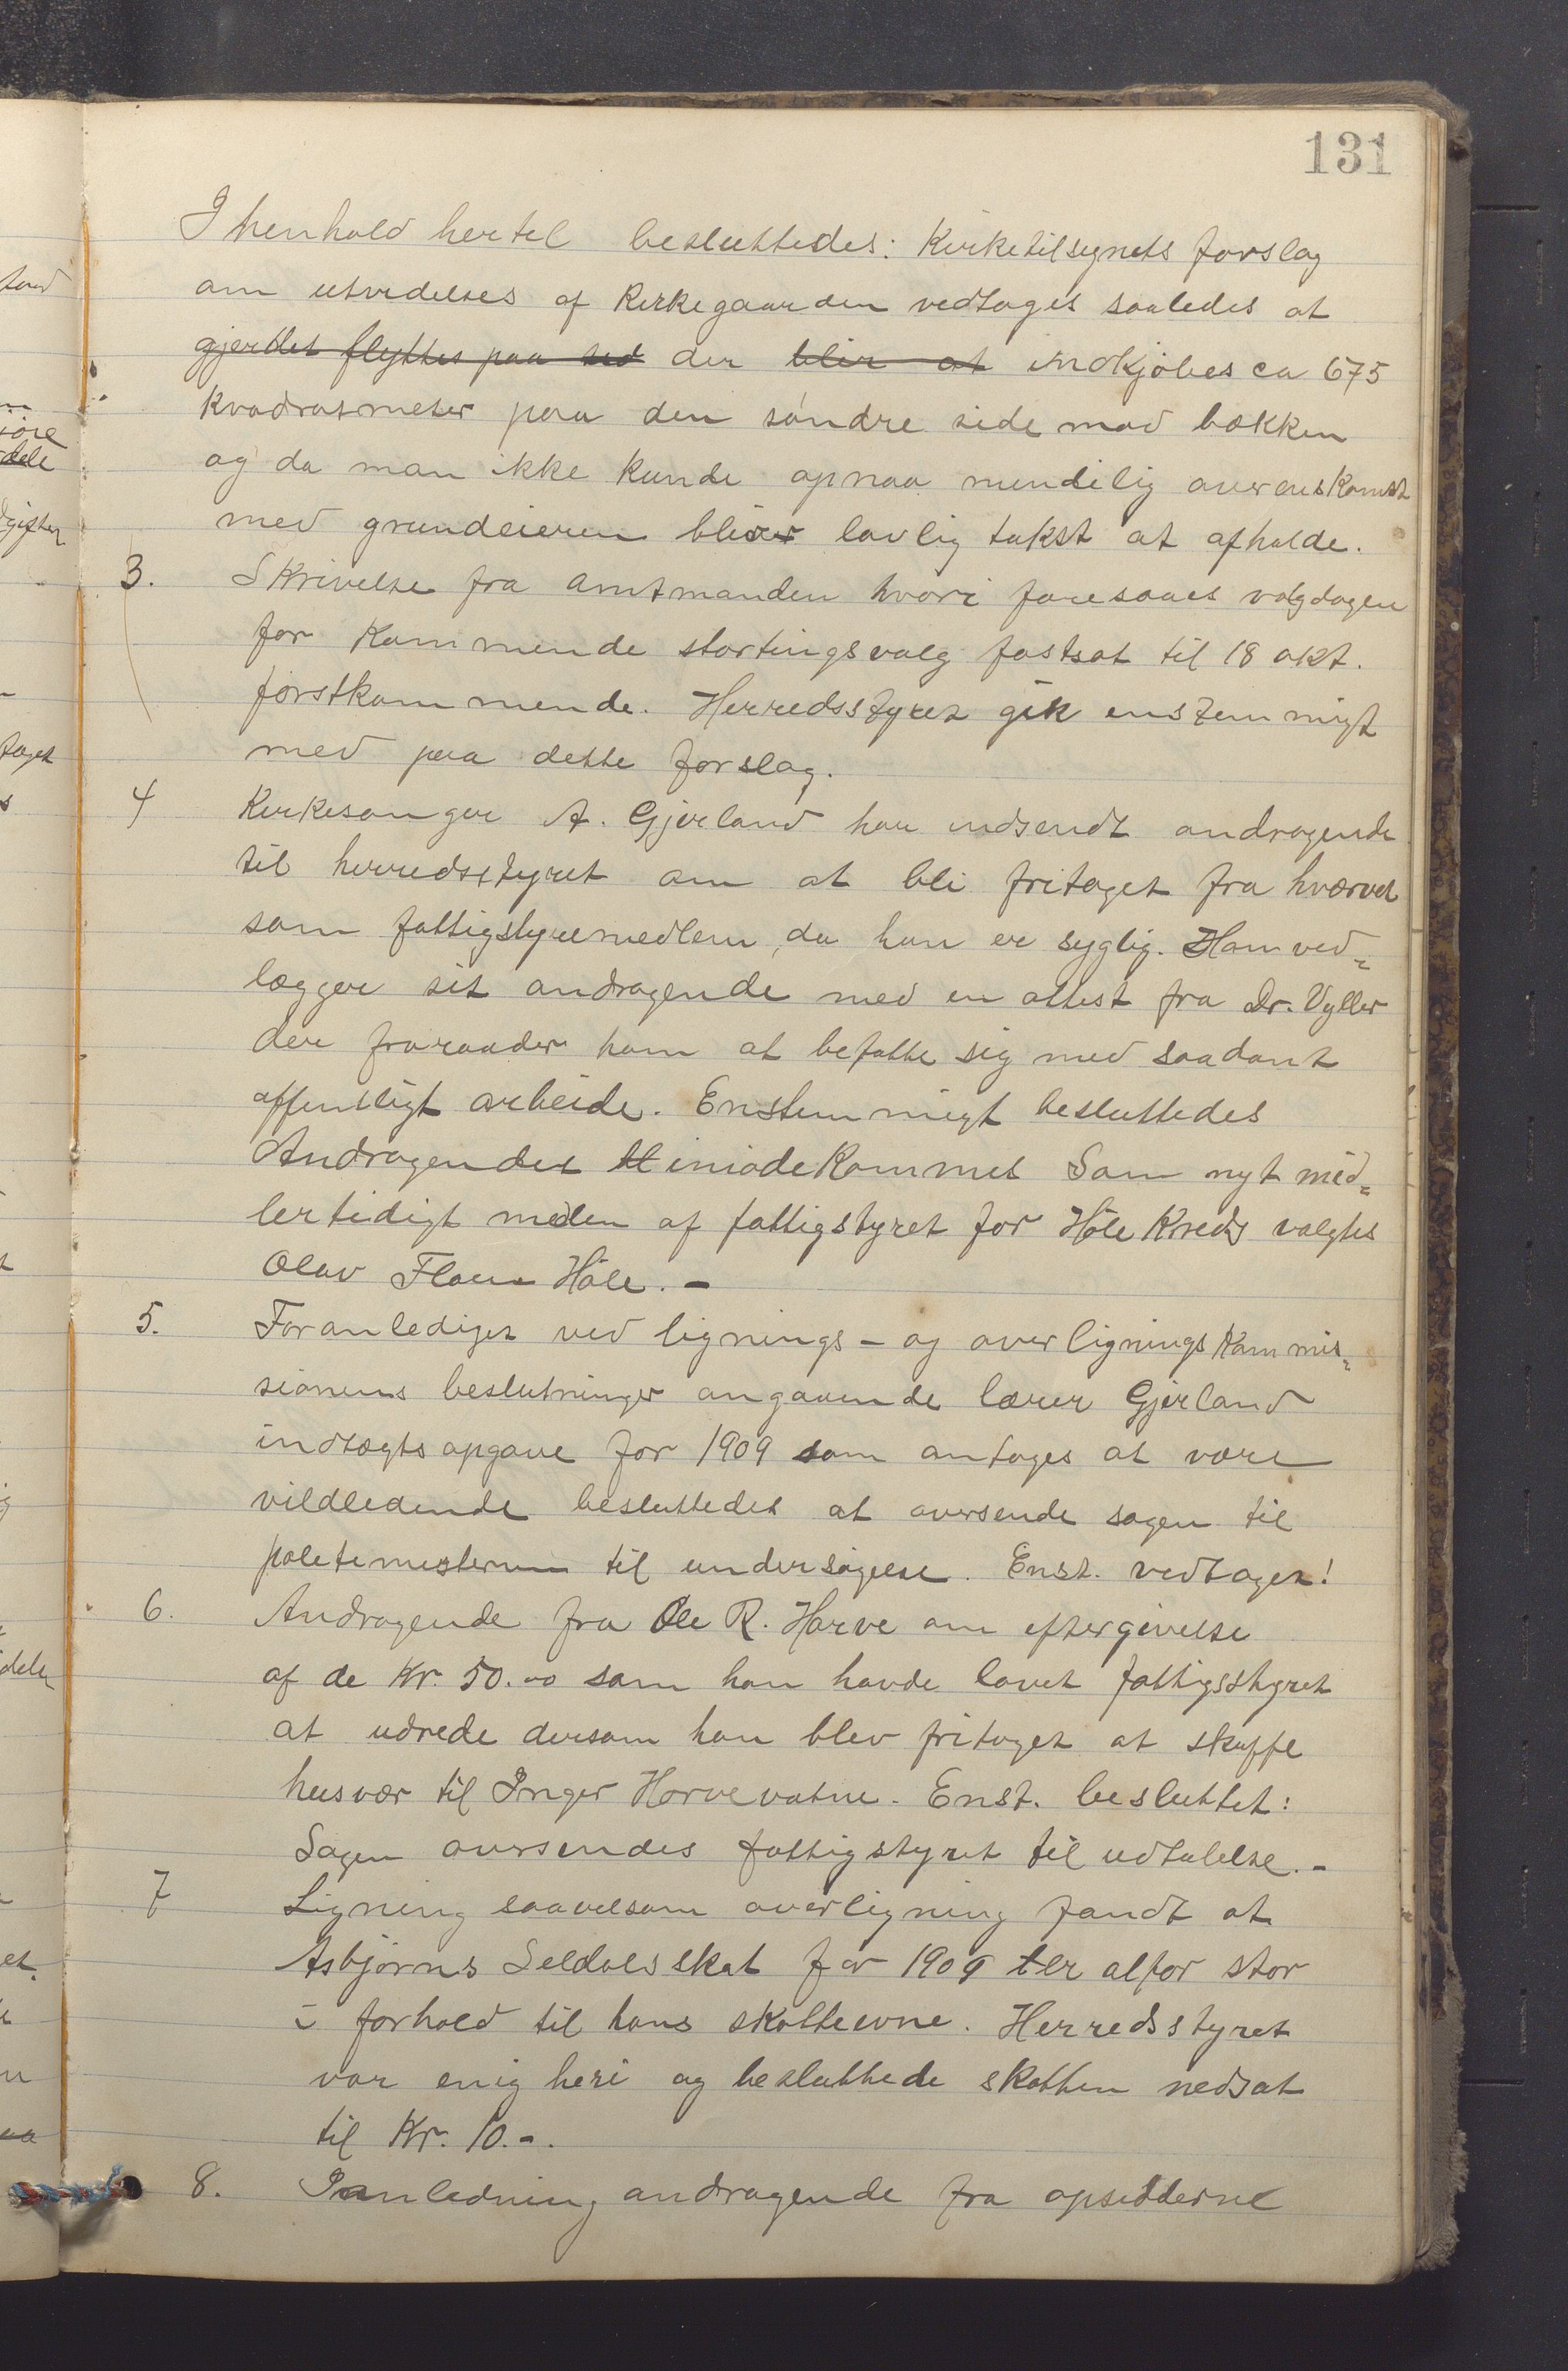 131
I henhold hertel besluttedes: Kirketilsynets forslag
om utvidelses af Kirkegaarden vedtages saaledes at
gjerdet flyttes paa der blir at indkjøbes ca 675
Kvadratmeter paa den søndre side mod bækken
og da man ikke kunde opnaa mindelig overenskomst
med grundeieren bliver lovlig takst at afholde.
3. Skrivelse fra amtmanden hvori foresaaes valgdagen
for kommende stortingsvalg fastsat til 18 okt.
førstkommende. Herredsstyret gik enstemmigt
med paa dette forslag.
4 Kirkesanger A. Gjerland har indsendt andragende
til herredsstyret om at bli fritaget fra hvervet
som fattigstyremedlem, da han er syglig. Han ved=
lægger sit andragende med en attest fra Dr. Vyller
der fraraader ham at befatte sig med saadant
offentligt arbeide. Enstemmigt besluttedes
Andragendet imødekommet Som nyt mid=
lertidigt medlem af fattigstyret for Høle Kreds valgtes
Olav Høle. -
5. Foranlediget ved lignings- og overligningskommis=
sionens beslutninger angaaende lærer Gjerland
indtægtsopgave for 1909 som antages at være
vildledende besluttedes at oversende sagen til
politimesteren til undersøgelse. Enst. vedtaget!
6. Andragende fra Ole R. Harve om eftergivelse
af de Kr. 50.00 som han havde lovet fattigsstyret
at udrede dersom han blev fritaget at skaffe
husvær til Inger Horvevatne. Enst. besluttet:
Sagen oversendes fattigstyret til udtalelse. -
7 Ligning saavelsom overligning fandt at
Asbjørns Seldals skat for 1909 er alfor stor
i forhold til hans skatteevne. Herredsstyret
var enig heri og besluttede skatten nedsat
til Kr. 10.-.
8. I anledning andragende fra opsidderne